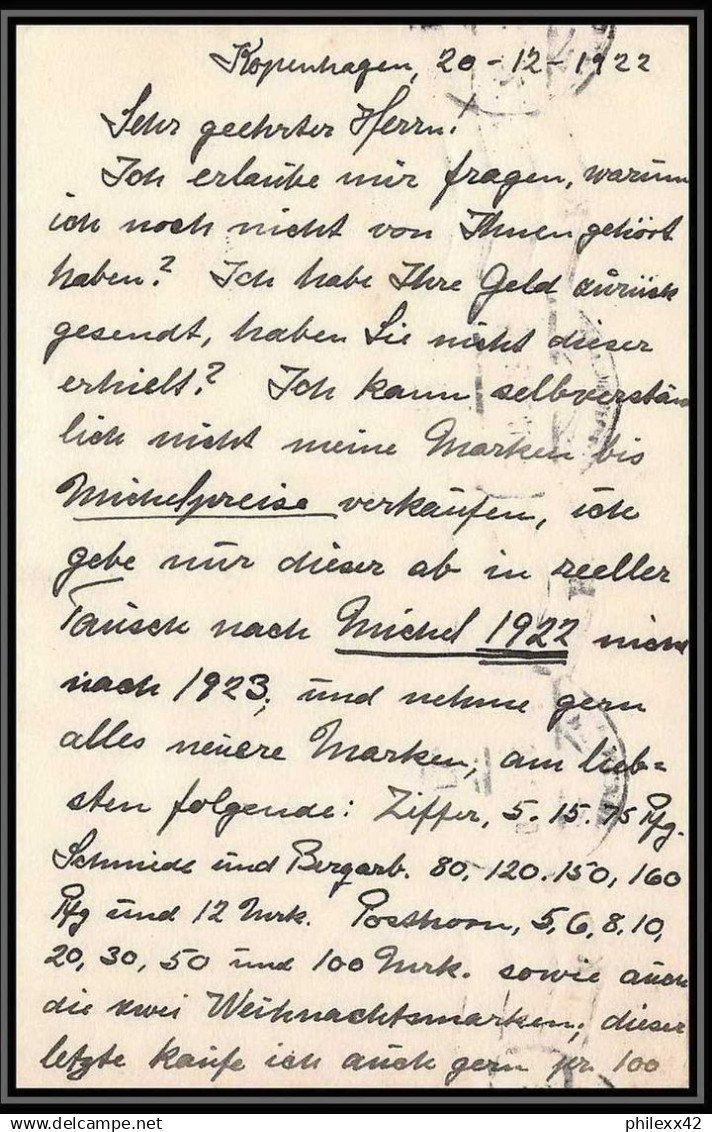 Kopenhagen, 20-12-1922
Sehr geehrter Herrn!
Ich erlaube mir fragen, warum
ich noch nicht von Ihnen gehört
haben? Ich habe Ihre Geld zurück
gesendt, haben Sie nicht dieser
erhielt? Ich kann selbverständ
lich nicht meine Marken bis
Michelpreise verkaufen, ich
gebe nur dieser ab in reeller
Tausch nach Michel 1922 nicht
nach 1923, und nehme gern
alles neuere Marken, am lieb=
sten folgende: Ziffer, 5. 15. 75 Pfg.
Schmiede und Bergarb. 80, 120, 150, 160
Pfg und 12 Mrk. Posthorn, 5, 6, 8, 10,
20, 30, 50 und 100 Mrk. sowie auch
die zwei Weihnachtsmarken, dieser
letzte kaufe ich auch gern pr. 100
philexx42